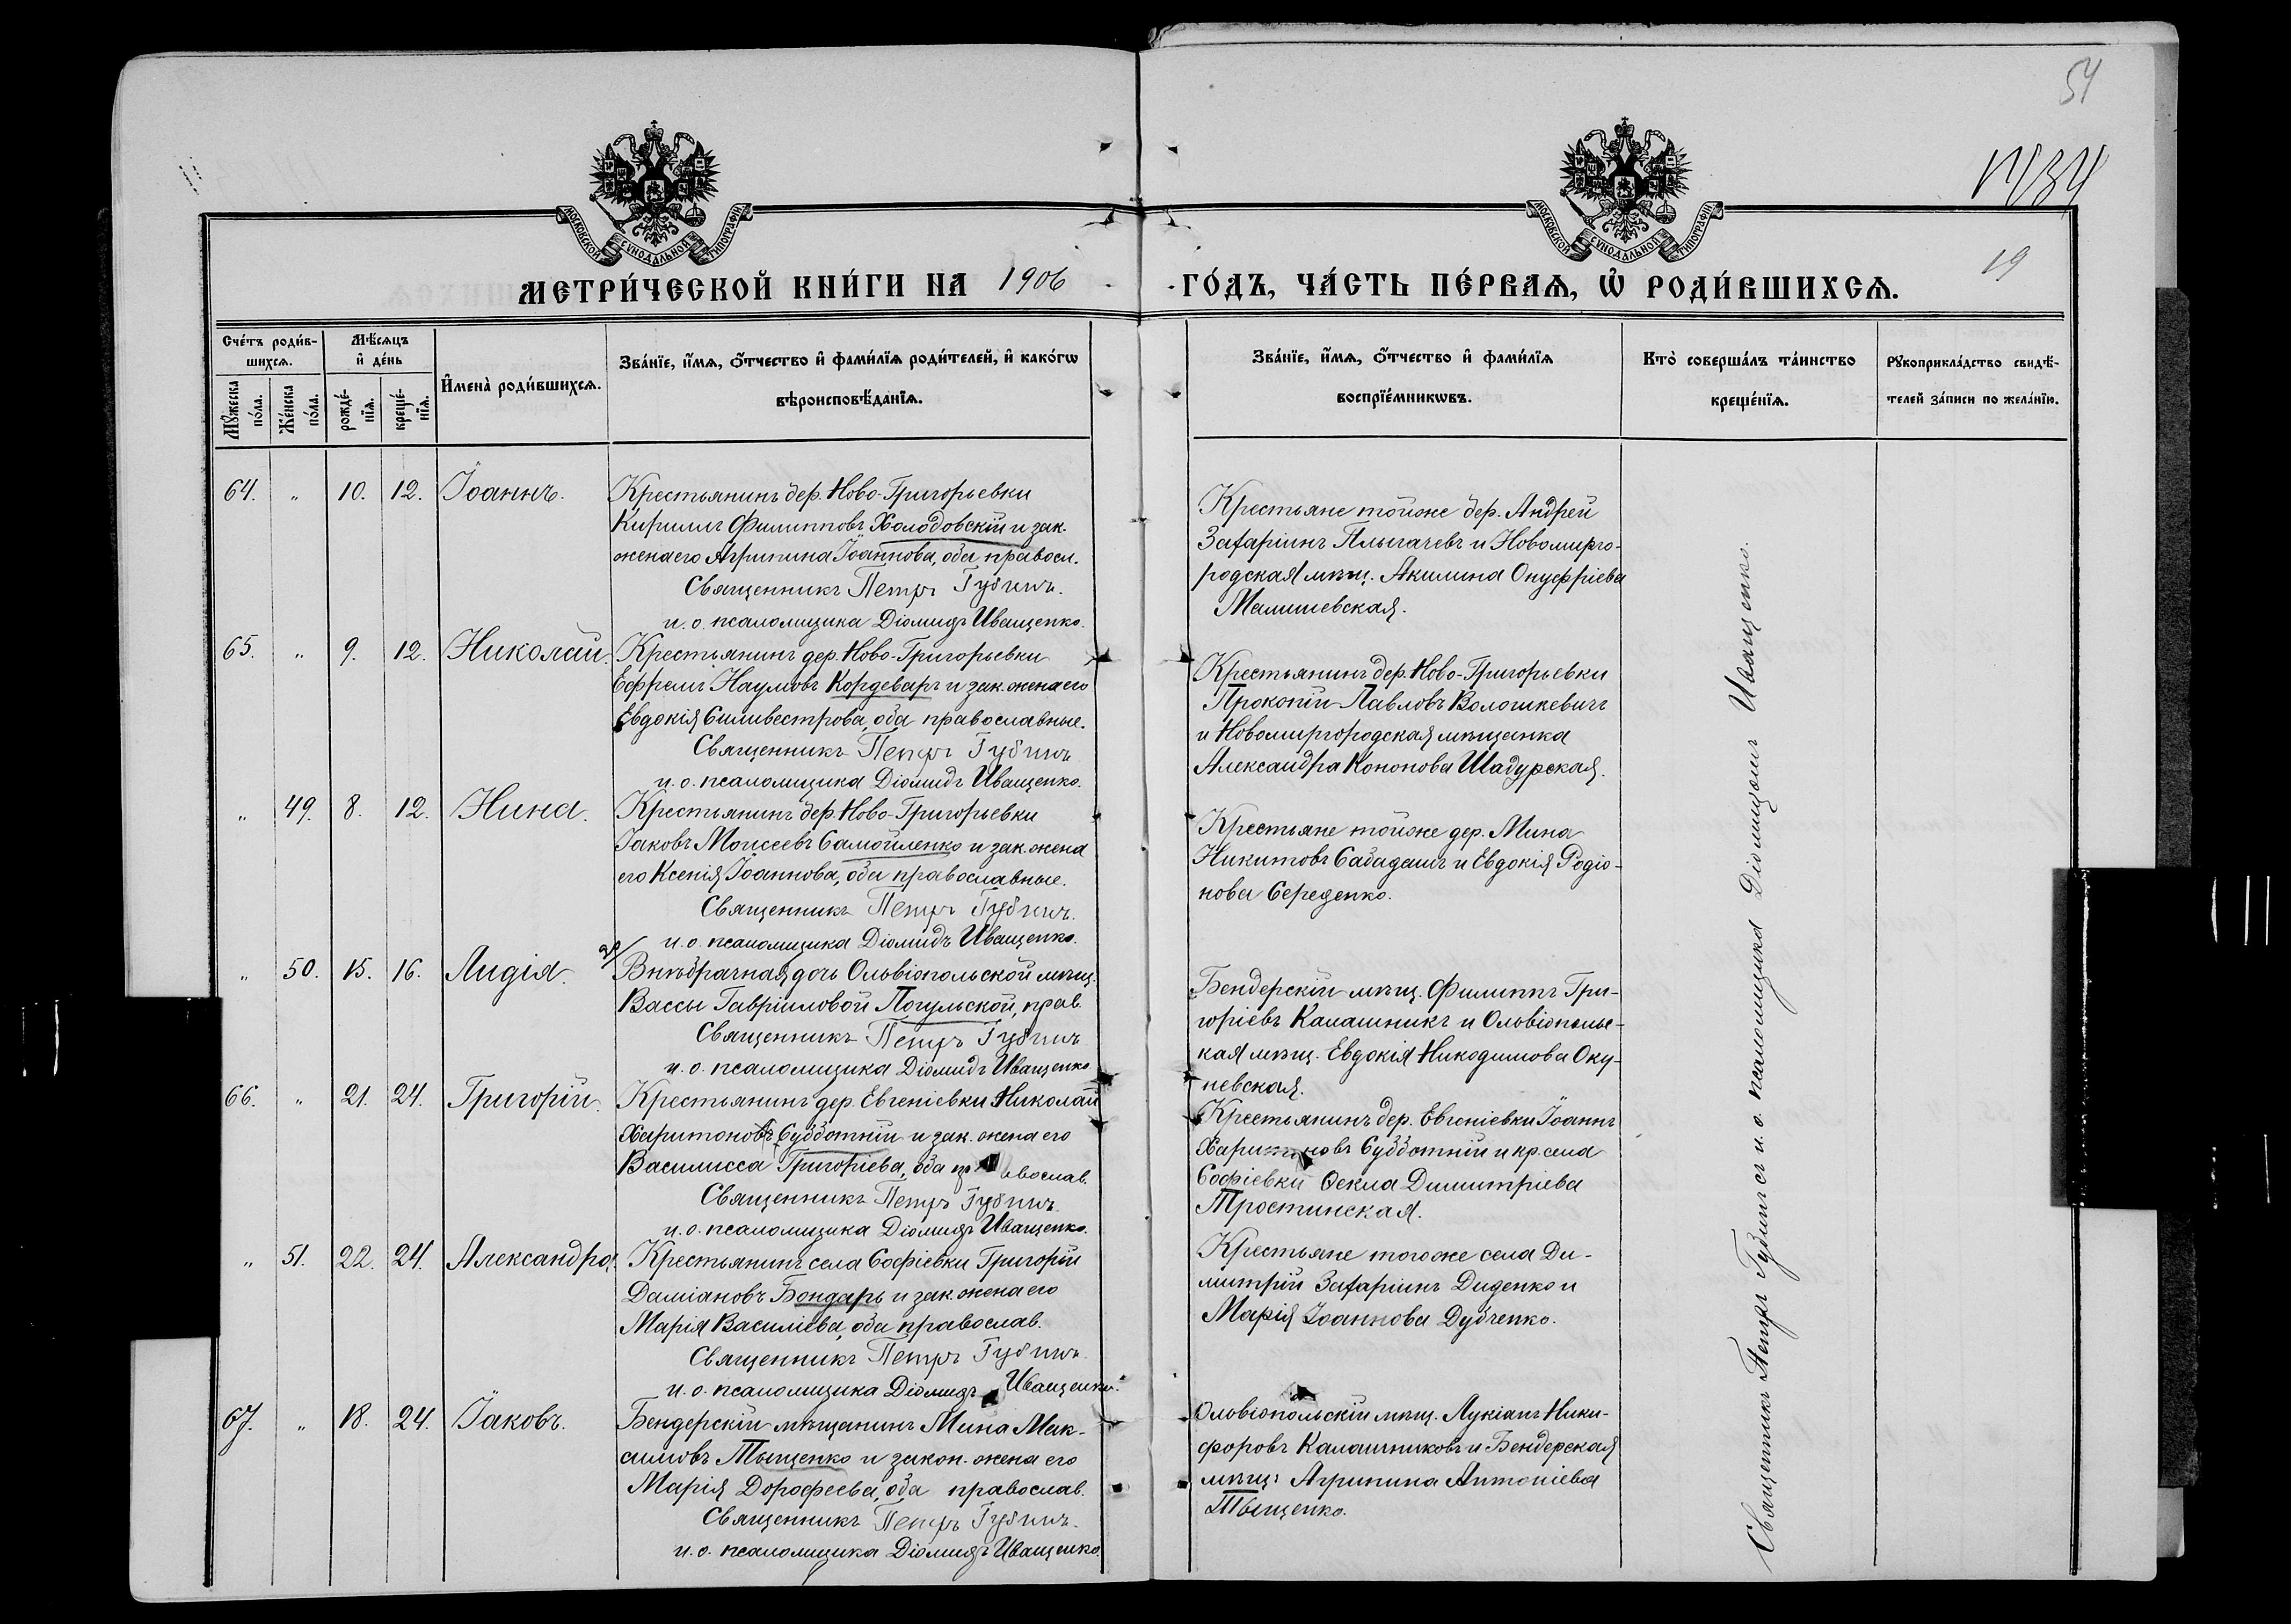 54
МОСКОВСКОЙ СУНОДАЛЬНОЙ ТИПОГРАФІИ
МОСКОВСКОЙ СУНОДАЛЬНОЙ ТИПОГРАФІИ
19
МЕТРИ́ЧЕСКОЙ КНИ́ГИ НА 1906
ГО́ДЪ, ЧА́СТЬ ПЕ́РВАѦ, Ѡ҆ РОДИ́ВШИХСѦ.
Сче́тъ роди́в-
шихсѧ.
Мѣ́сѧцъ
и҆ де́нь
Мꙋ́жеска
по́ла.
Же́нска
по́ла.
рожде́-
нїѧ.
креще́-
нїѧ.
И҆мена̀ роди́вшихсѧ.
Зва́нїе, и҆́мѧ, ѻ҆́тчество и҆ фами́лїѧ роди́телей, и҆ како́гѡ
вѣроисповѣ́данїѧ.
Зва́нїе, и҆́мѧ, ѻ҆́тчество и҆ фами́лїѧ
воспрїе́мникѡвъ.
Кто̀ соверша́лъ та́инство
креще́нїѧ.
Рꙋкоприкла́дство свидѣ́-
телей за́писи по жела́нїю.
64. „ 10. 12. Іоаннъ.
Крестьянинъ дер. Ново-Григорьевки
Кириллъ Филипповъ Холодовскій и зак.
жена его Агрипина Іоаннова, оба правосл.
Священникъ Петръ Губинъ.
и. о. псаломщика Діомидъ Иващенко.
Крестьяне тойже дер. Андрей
Захаріинъ Плыгачевъ и Новомирго-
родская мѣщ. Акилина Онуфріева
Малишевская.
65. „ 9. 12. Николай.
Крестьянинъ дер. Ново-Григорьевки
Ефремъ Наумовъ Кордеваръ и зак. жена его
Евдокія Силивестрова, оба православные.
Священникъ Петръ Губинъ
и. о. псаломщика Діомидъ Иващенко.
Крестьянинъ дер. Ново-Григорьевки
Прокопій Павловъ Волошкевичъ
и Новомиргородская мѣщанка
Александра Кононова Шадурская.
„ 49. 8. 12. Нина.
Крестьянинъ дер. Ново-Григорьевки
Іаковъ Моисеевъ Самойленко и зак. жена
его Ксенія Іоаннова, оба православные.
Священникъ Петръ Губинъ.
и. о. псаломщика Діомидъ Иващенко.
Крестьяне тойже дер. Мина
Никитовъ Сабадашъ и Евдокія Родіо-
нова Середенко.
„ 50. 15. 16. Лидія.
Внѣбрачная дочь Ольвіопольской мѣщ.
Вассы Гавріиловой Погульской, прав.
Священникъ Петръ Губинъ
и. о. псаломщика Діомидъ Иващенко
Бендерскій мѣщ. Филиппъ Гри-
горіевъ Калашникъ и Ольвіопольс-
кая мѣщ. Евдокія Никодимова Оку-
невская.
66. „ 21. 24. Григорій.
Крестьянинъ дер. Евгеніевки Николай
Харитоновъ Субботній и зак. жена его
Василисса Григоріева, оба православ.
Священникъ Петръ Губинъ.
и. о. псаломщика Діомидъ Иващенко.
Крестьянинъ дер. Евгеніевки Іоаннъ
Харитоновъ Субботній и кр. села
Софіевки Ѳекла Димитріева
Тростинская.
„ 51. 22. 24. Александра.
Крестьянинъ села Софіевки Григорій
Даміановъ Бондарь и зак. жена его
Марія Василіева, оба православ.
Священникъ Петръ Губинъ.
и. о. псаломщика Діомидъ Иващенко.
Крестьяне тогоже села Ди-
митрій Захаріинъ Диденко и
Марія Іоаннова Дубченко.
67. „ 18. 24. Іаковъ.
Бендерскій мѣщанинъ Мина Мак-
симовъ Тыщенко и закон. жена его
Марія Дорофеева, оба православ.
Священникъ Петръ Губинъ.
и. о. псаломщика Діомидъ Иващенко.
Ольвіопольскій мѣщ. Лукіанъ Ники-
форовъ Калашниковъ и Бендерская
мѣщ: Агрипина Антоніева
Тыщенко.
Священникъ Петръ Губинъ съ и. о. псаломщика Діомидомъ Иващенко.